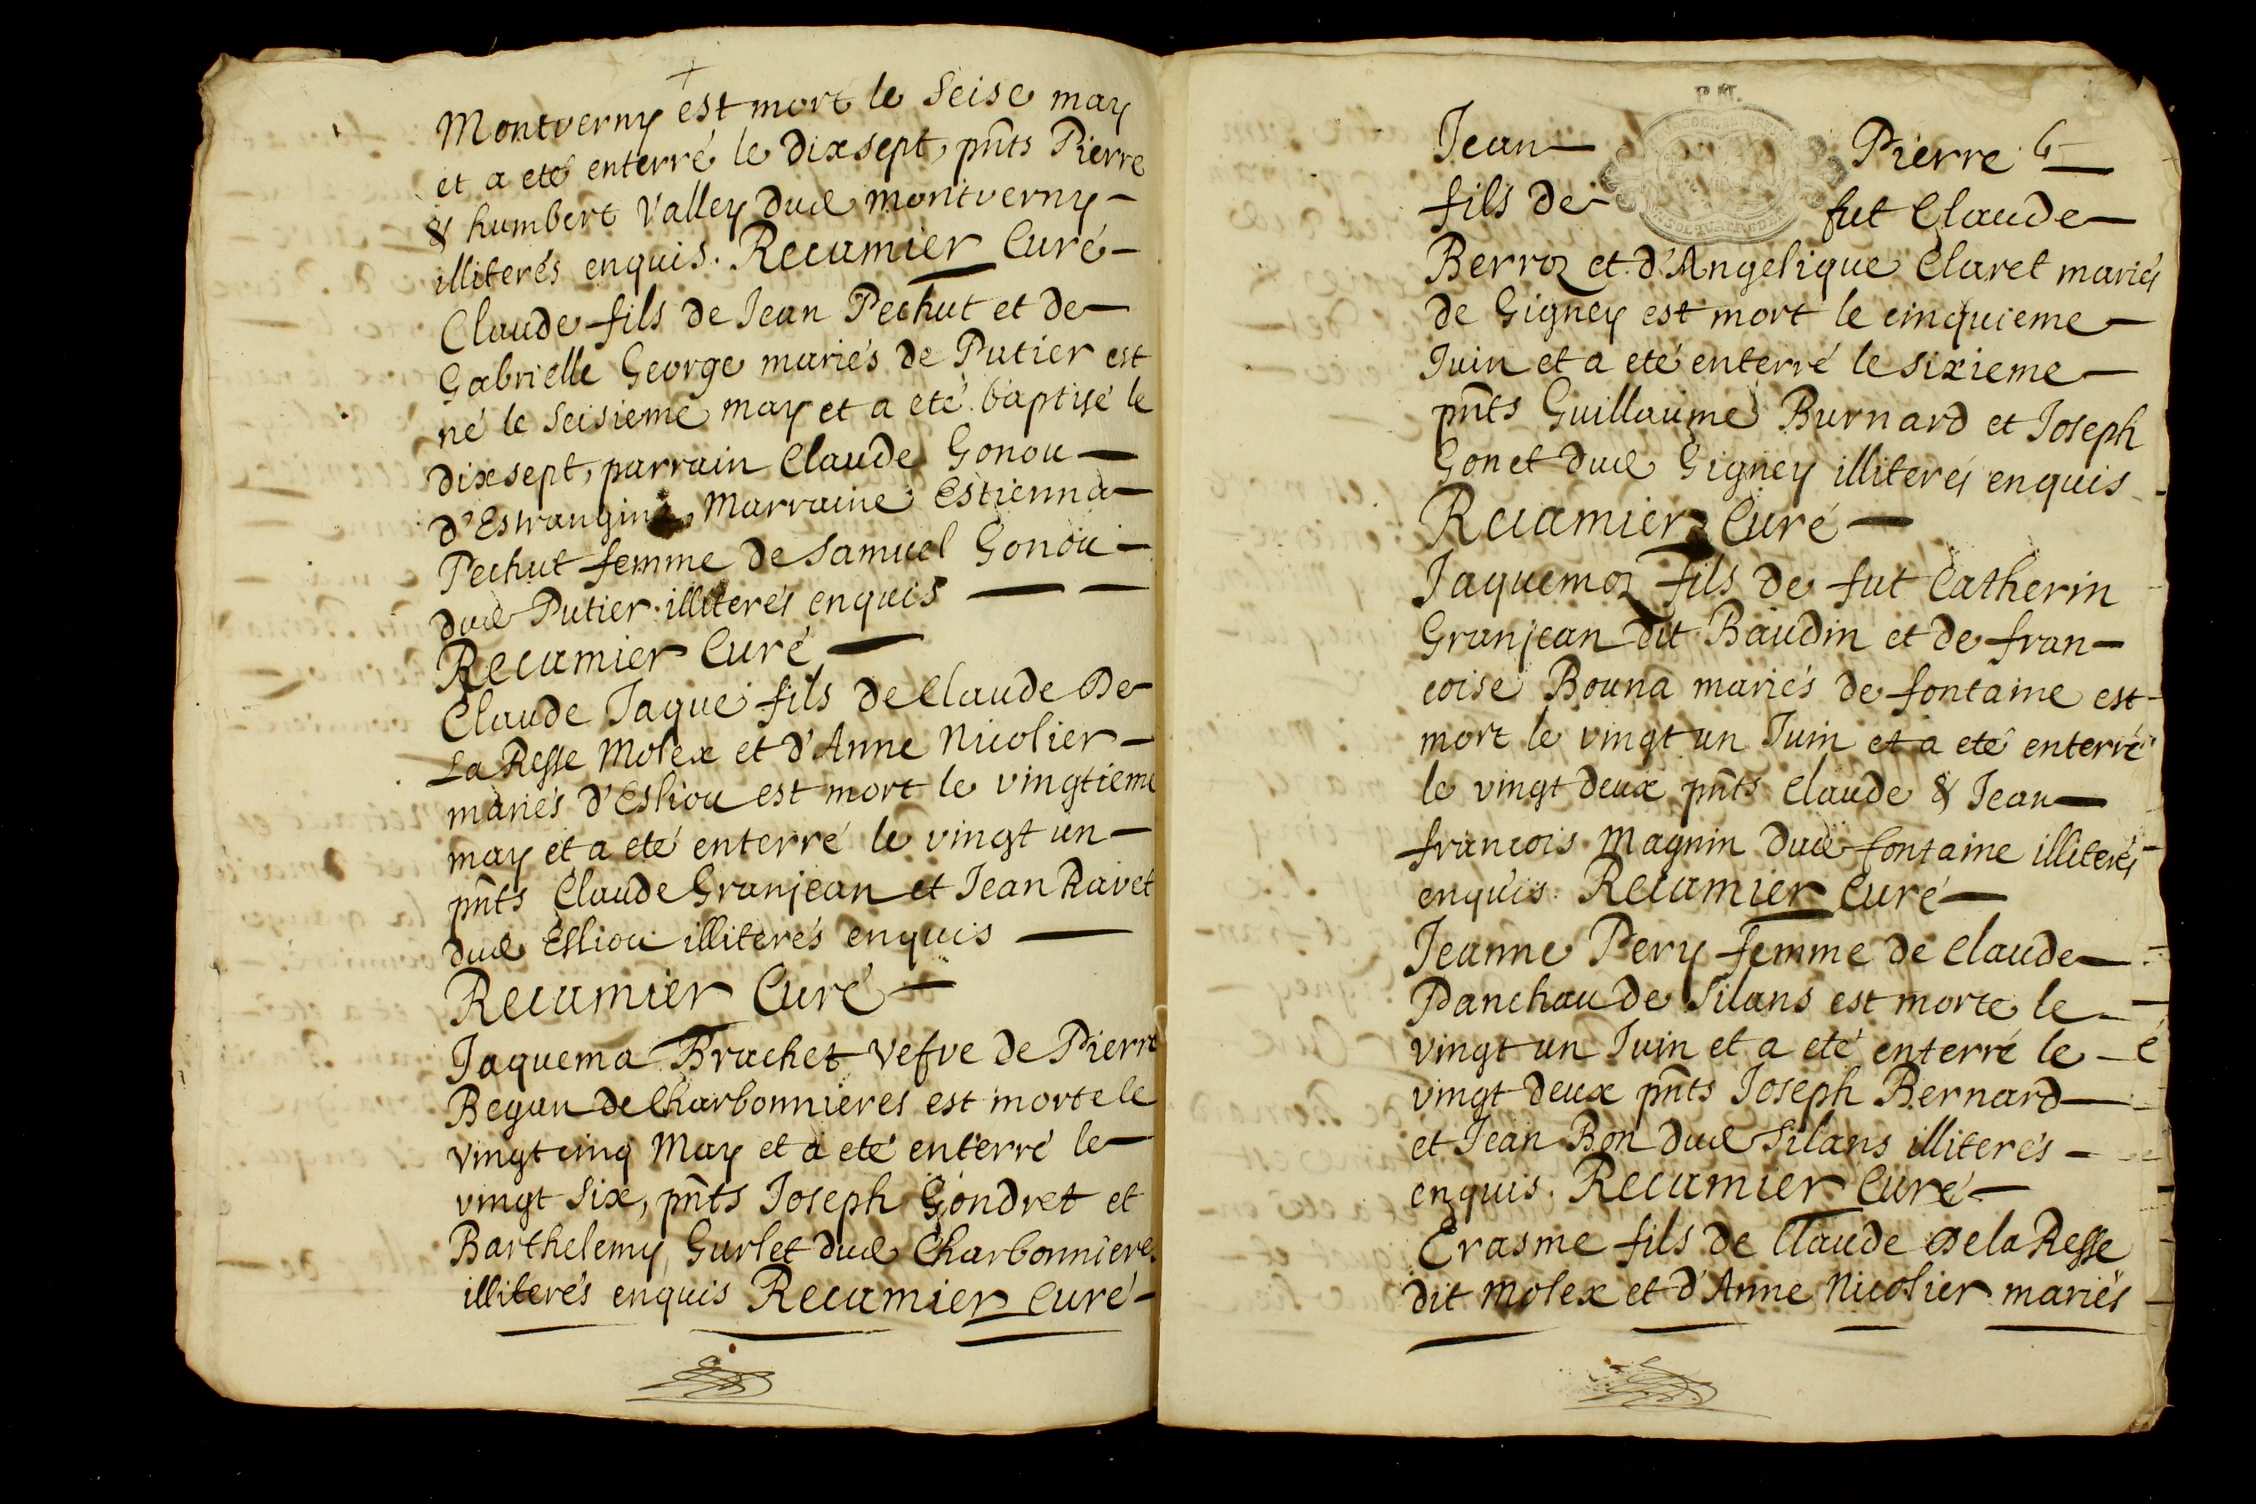 Montverny est mort le Seise may
et a eté enterré le dixsept, pnts Pierre
& humbert Valley dud montverny
illiterés enquis. Recamier Curé
Claude fils de Jean Pechut et de
Gabrielle George mariés de Putier est
né le Seisieme may et a eté baptisé le
dixsept, parrain Claude Gonou
d'Estrangin, Marraine Estienna
Pechut femme de Samuel Gonou
dud Putier illiterés enquis
Recamier Curé
Claude Jaque fils de Claude De
La Resse Molex et d'Anne Nicolier
mariés d'Esliou est mort le vingtieme
may et a eté enterré le vingt un
pnts Claude Granjean et Jean Ravet
dud Esliou illiterés enquis
Recamier Curé
Jaquema Brachet vefve de Pierre
Begun de Charbonnieres est morte le
vingt cinq May et a eté enterré le
vingt six, pnts Joseph Gondret et
Barthelemy Gurlet dud Charbonnieres
illiterés enquis Recamier Curé
P.M.
Jean Pierre
fils de fut Claude
Berroz et d'Angelique Claret mariés
de Gigney est mort le cinquieme
Juin et a eté enterré le sixieme
pnts Guillaume Burnard et Joseph
Gonet dud Gigney illiterés enquis
Recamier Curé
Jaquemoz fils de fut Catherin
Granjean dit Baudin et de fran-
coise Bouna mariés de fontaine est
mort le vingt un Juin et a eté enterré
le vingt deux pnts Claude & Jean
francois Magnin dud fontaine illiterés
enquis Recamier Curé
Jeanne Pery femme de Claude
Panchau de Silans est morte le
vingt un Juin et a eté enterré le
vingt deux pnts Joseph Bernard
et Jean Bon dud Silans illiterés
enquis. Recamier Curé
Erasme fils de Claude De la Resse
dit Molex et d'Anne Nicolier mariés